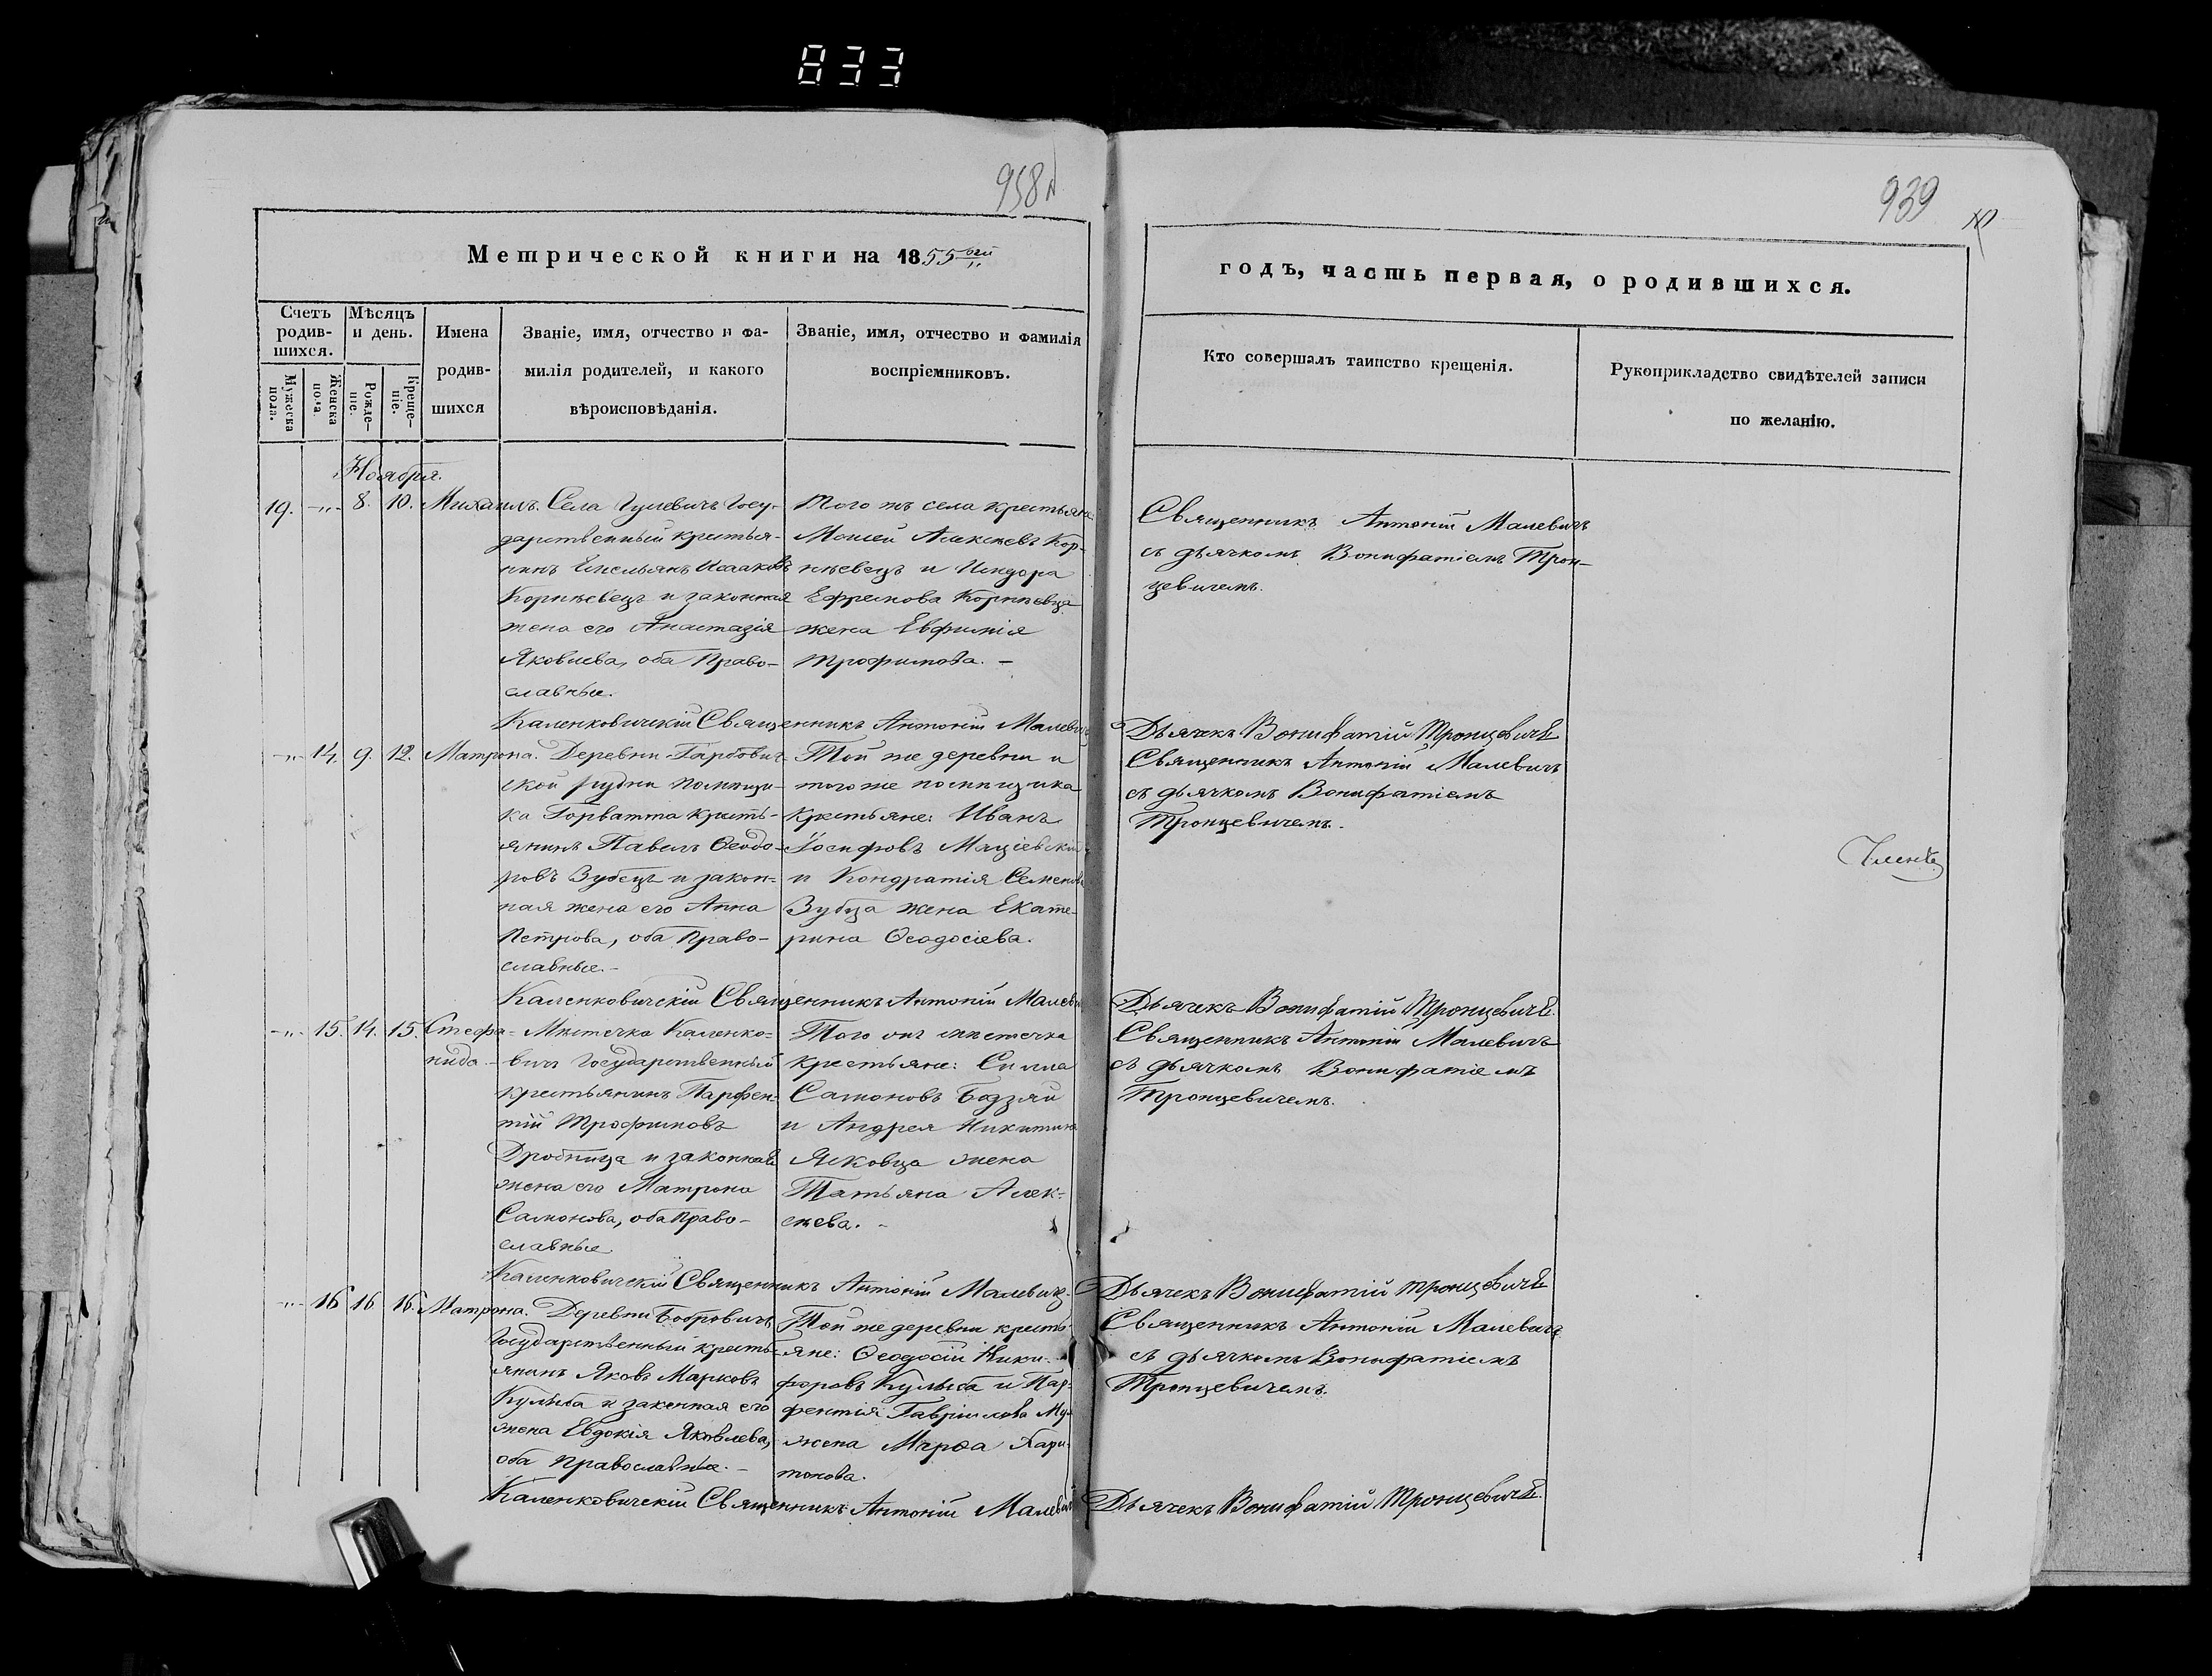 833
958
939
Метрической книги на 1855
годъ, часть первая, о родившихся.
Счетъ родив-шихся.
Мужеска пола.
Женска пола.
Мѣсяцъ и день.
Рожде-ніе.
Креще-ніе.
Имена родив-шихся
Званіе, имя, отчество и фа-
милія родителей, и какого
вѣроисповѣданія.
Званіе, имя, отчество и фамилія
воспріемниковъ.
Кто совершалъ таинство крещенія.
Рукоприкладство свидѣтелей записи
по желанію.
Ноября.
19. -„- 8. 10. Михаилъ.
Села Гулевичъ Госу-
дарственный крестья-
нинъ Емельянъ Исааковъ
Корнѣевецъ и законная
жена его Анастазія
Яковлева, оба Право-
славные.
Того жъ села крестьяне
Моисей Алексѣевъ Кор-
нѣевецъ и Исидора
Ефремова Корнѣевца
жена Евфимія
Трофимова. -
Священникъ Антоній Малевичъ
съ дьячкомъ Вонифатіемъ Трон-
цевичемъ.
Каленковичскій Священникъ Антоній Малевичъ
Дьячекъ Вонифатій Тронцевичъ
-„- 14. 9. 12. Матрона.
Деревни Гарбович-
ской Рудни помѣщи-
ка Горватта кресть-
янинъ Павелъ Ѳеодо-
ровъ Зубецъ и закон-
ная жена его Анна
Петрова, оба Право-
славные. -
Той же деревни и
того же помѣщика
крестьяне: Иванъ
Іосифовъ Маціевскій
и Кондратія Семенова
Зубца жена Екате-
рина Ѳеодосіева.
Священникъ Антоній Малевичъ
съ дьячкомъ Вонифатіемъ
Тронцевичемъ.
Каленковичскій Священникъ Антоній Малевичъ
Дьячекъ Вонифатій Тронцевичъ.
-„- 15. 14. 15. Стефа-
нида. -
Мѣстечка Каленко-
вичъ Государственный
крестьянинъ Парфен-
тій Трофимовъ
Дробница и законная
жена его Матрона
Самонова, оба Право-
славные.
Того жъ мѣстечка
крестьяне: Силла
Самоновъ Бодзяй
и Андрея Никитина
Ясковца жена
Татьяна Алек-
сѣева. -
Священникъ Антоній Малевичъ
съ дьячкомъ Вонифатіемъ
Тронцевичемъ.
Каленковичскій Священникъ Антоній Малевичъ.
Дьячекъ Вонифатій Тронцевичъ
-„- 16 16 16. Матрона.
Деревни Бобровичъ
Государственный кресть-
янинъ Яковъ Марковъ
Кулыба и законная его
жена Евдокія Яковлева,
оба Православные. -
Той же деревни кресть-
яне: Ѳеодосій Ники-
форовъ Кулыба и Пар-
фентія Гавріилова
жена Марѳа Хари-
тонова.
Священникъ Антоній Малевичъ
съ дьячкомъ Вонифатіемъ
Тронцевичемъ.
Каленковичскій Священникъ Антоній Малевичъ
Дьячекъ Вонифатій Тронцевичъ.